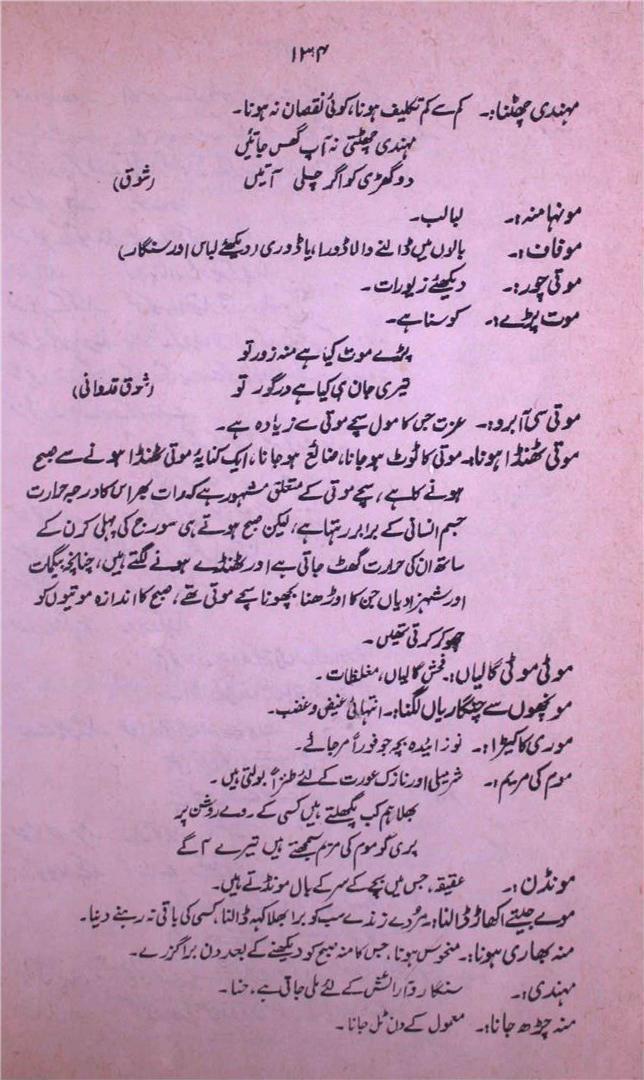 ۱۳۴
مہندی چھٹنا:۔ کم سے کم تکلیف ہونا، کوئی نقصان نہ ہونا۔
مہندی چھٹتی نہ آپ گھس جاتیں
دو گھڑی کو اگر چلی آتیں (شوق)
مونہا منہ:۔ لبالب۔
موفاف:۔ بالوں میں ڈالنے والا ڈورا، یا ڈوری (دیکھئے لباس اور سنگار)
موتی چور:۔ دیکھئے زیورات۔
موت پڑے:۔ کوسنا ہے۔
پڑے موت کیا ہے منہ زور تو
تیری جان ہی کیا ہے درگور تو (شوق قدوائی)
موتی سی آبرو:۔ عزت جس کا مول سچے موتی سے زیادہ ہے۔
موتی ٹھنڈا ہونا:۔ موتی کا ٹوٹ ہوجانا، ضائع ہوجانا، ایک کنایہ موتی ٹھنڈا ہونے سے صبح
ہونے کا ہے، سچے موتی کے متعلق مشہور ہے کہ رات بھر اس کا درجہ حرارت
جسم انسانی کے برابر رہتا ہے، لیکن صبح ہوتے ہی سورج کی پہلی کرن کے
ساتھ ان کی حرارت گھٹ جاتی ہے اور ٹھنڈے ہونے لگتے ہیں، چنانچہ بیگمات
اور شہزادیاں جن کا اوڑھنا بچھونا سچے موتی تھے، صبح کا اندازہ موتیوں کو
چھو کر کرتی تھیں۔
موٹی موٹی گالیاں:۔ فحش گالیاں، مغلظات۔
مونچھوں سے چنگاریاں لگنا:۔ انتہائی غیض و غضب۔
موری کا کیڑا:۔ نوزائیدہ بچہ جو فوراً مرجائے۔
موم کی مریم:۔ شرمیلی اور نازک عورت کے لئے طنزاً بولتی ہیں۔
بھلا ہم کب پگھلتے ہیں کسی کے روے روشن پر
پری کو موم کی مریم سمجھتے ہیں تیرے آگے
مونڈن:۔ عقیقہ، جس میں بچے کے سر کے بال مونڈتے ہیں۔
موے جیتے اکھاڑ ڈالنا:۔ مُردے زندے سب کو برا بھلا کہہ ڈالنا، کسی کی باقی نہ رہنے دینا۔
منہ بھاری ہونا:۔ منحوس ہونا، جس کا منہ صبح کو دیکھنے کے بعد دن برا گزرے۔
مہندی:۔ سنگار و آرائش کے لئے ملی جاتی ہے، حنا۔
منہ چڑھ جانا:۔ معمول کے دن ٹل جانا۔